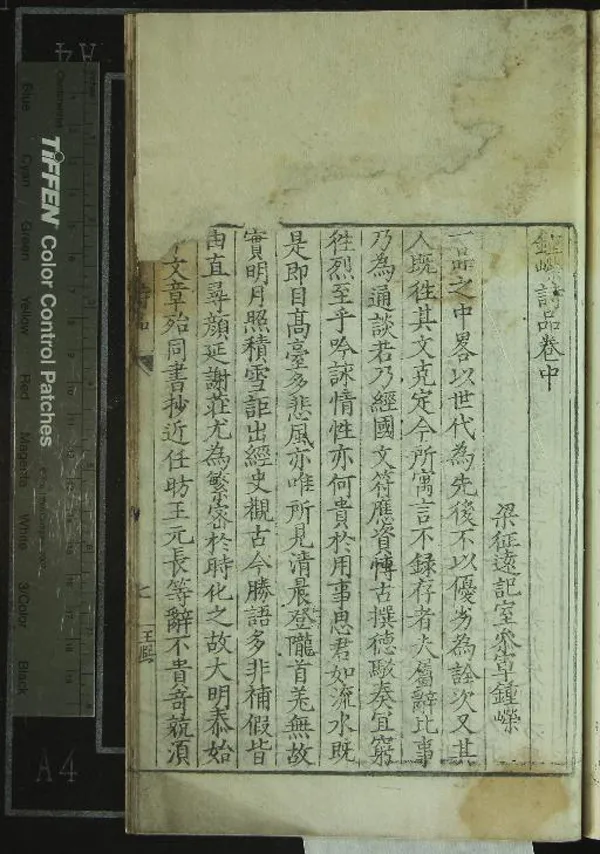 鍾嶸詩品卷中
梁征遠記室參軍鍾嶸
一品之中畧以世代為先後不以優劣為詮次又其
人既徃其文克定今所寓言不録存者夫屬辭比事
乃為通談若乃經國文符應資博古撰徳駁奏宜窮
徃烈至乎吟詠情性亦何貴於用事思君如流水既
是即目髙䑓多悲風亦唯所見清晨登隴首羌無故
實明月照積雪詎出經史觀古今勝語多非補假皆
由直尋顔延謝莊尤為繁密於時化之故大明泰始
文章殆同書抄近任昉王元長等辭不貴竒競須
詩品
七
王熙
TiFFEN Color Control Patches
Blue
Cyan
Green
Yellow
Red
Magenta
White
3/Color
Black
A4
A4